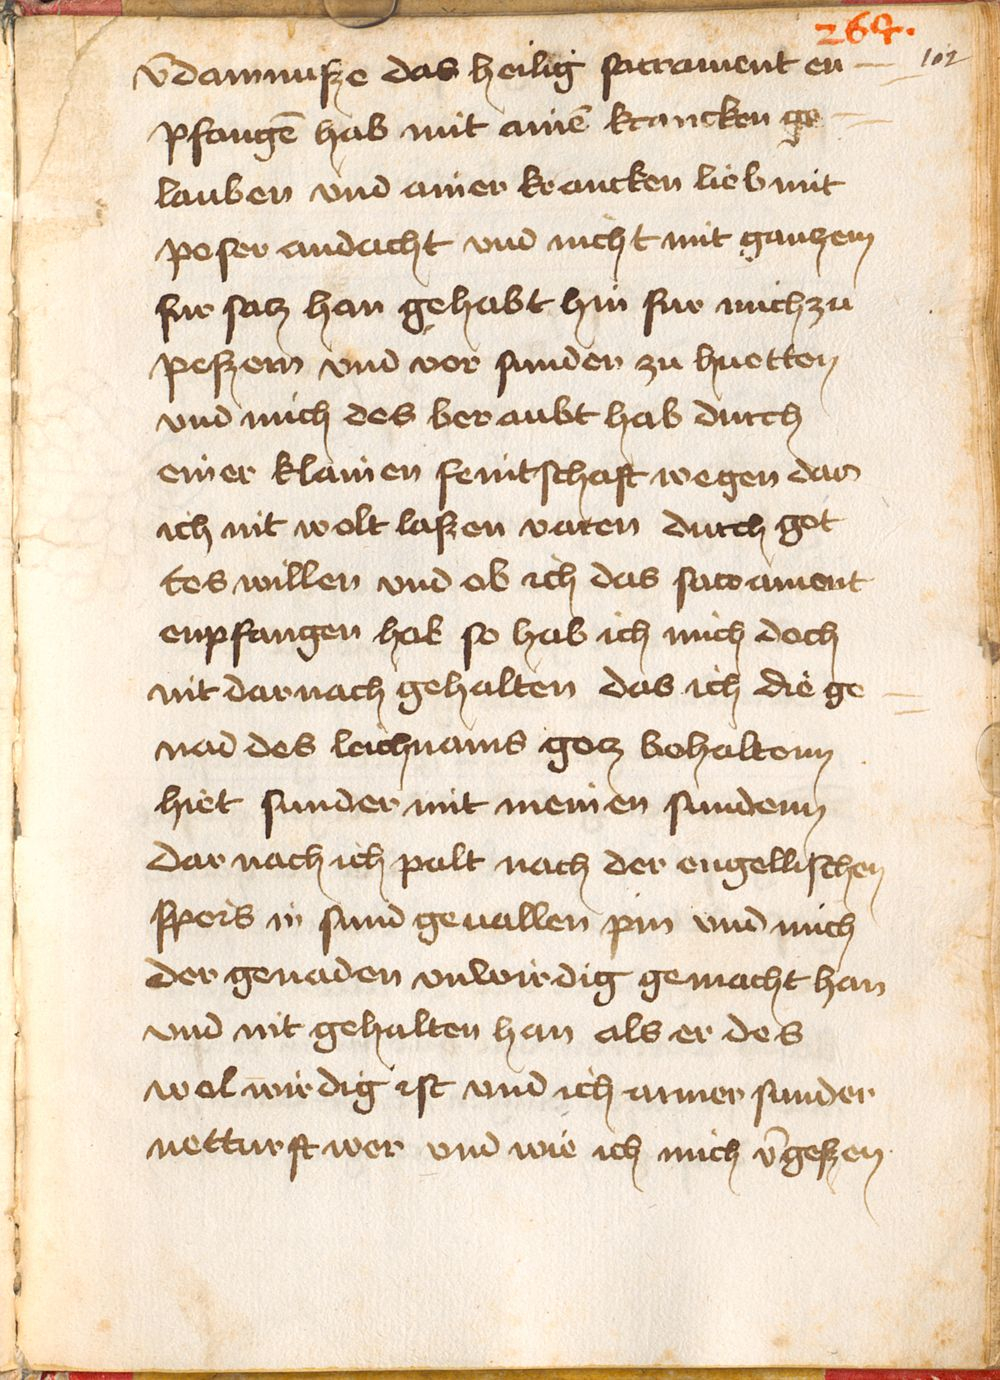 269.
102
v̄damnusze das heilig sacrament en
pfangē hab mit ainē krancken ge
lauben vnd ainer krancken lieb mit
poser andacht vnd nicht mit ganzem
fur satz han gehabt hin fur mich zu
peszern vnd vor sunden zu huetten
vnd mich des beraubt hab durch
einer klainen feintschaft wegen dar
ich nit wolt laszen varen durch got
tes willen vnd ob ich das sacrament
enpfangen hab so hab ich mich doch
nit darnach gehalten das ich die ge
nad des leichnams gotz behaltenn
hiet sunder mit meinen sundenn
dar nach ich palt nach der engellischen
speis in sund geuallen pin vnd mich
der genaden vnwirdig gemacht han
vnd nit gehalten han als er des
wol wirdig ist vnd ich armer sunder
netturft wer vnd wie ich mich v̄geszen